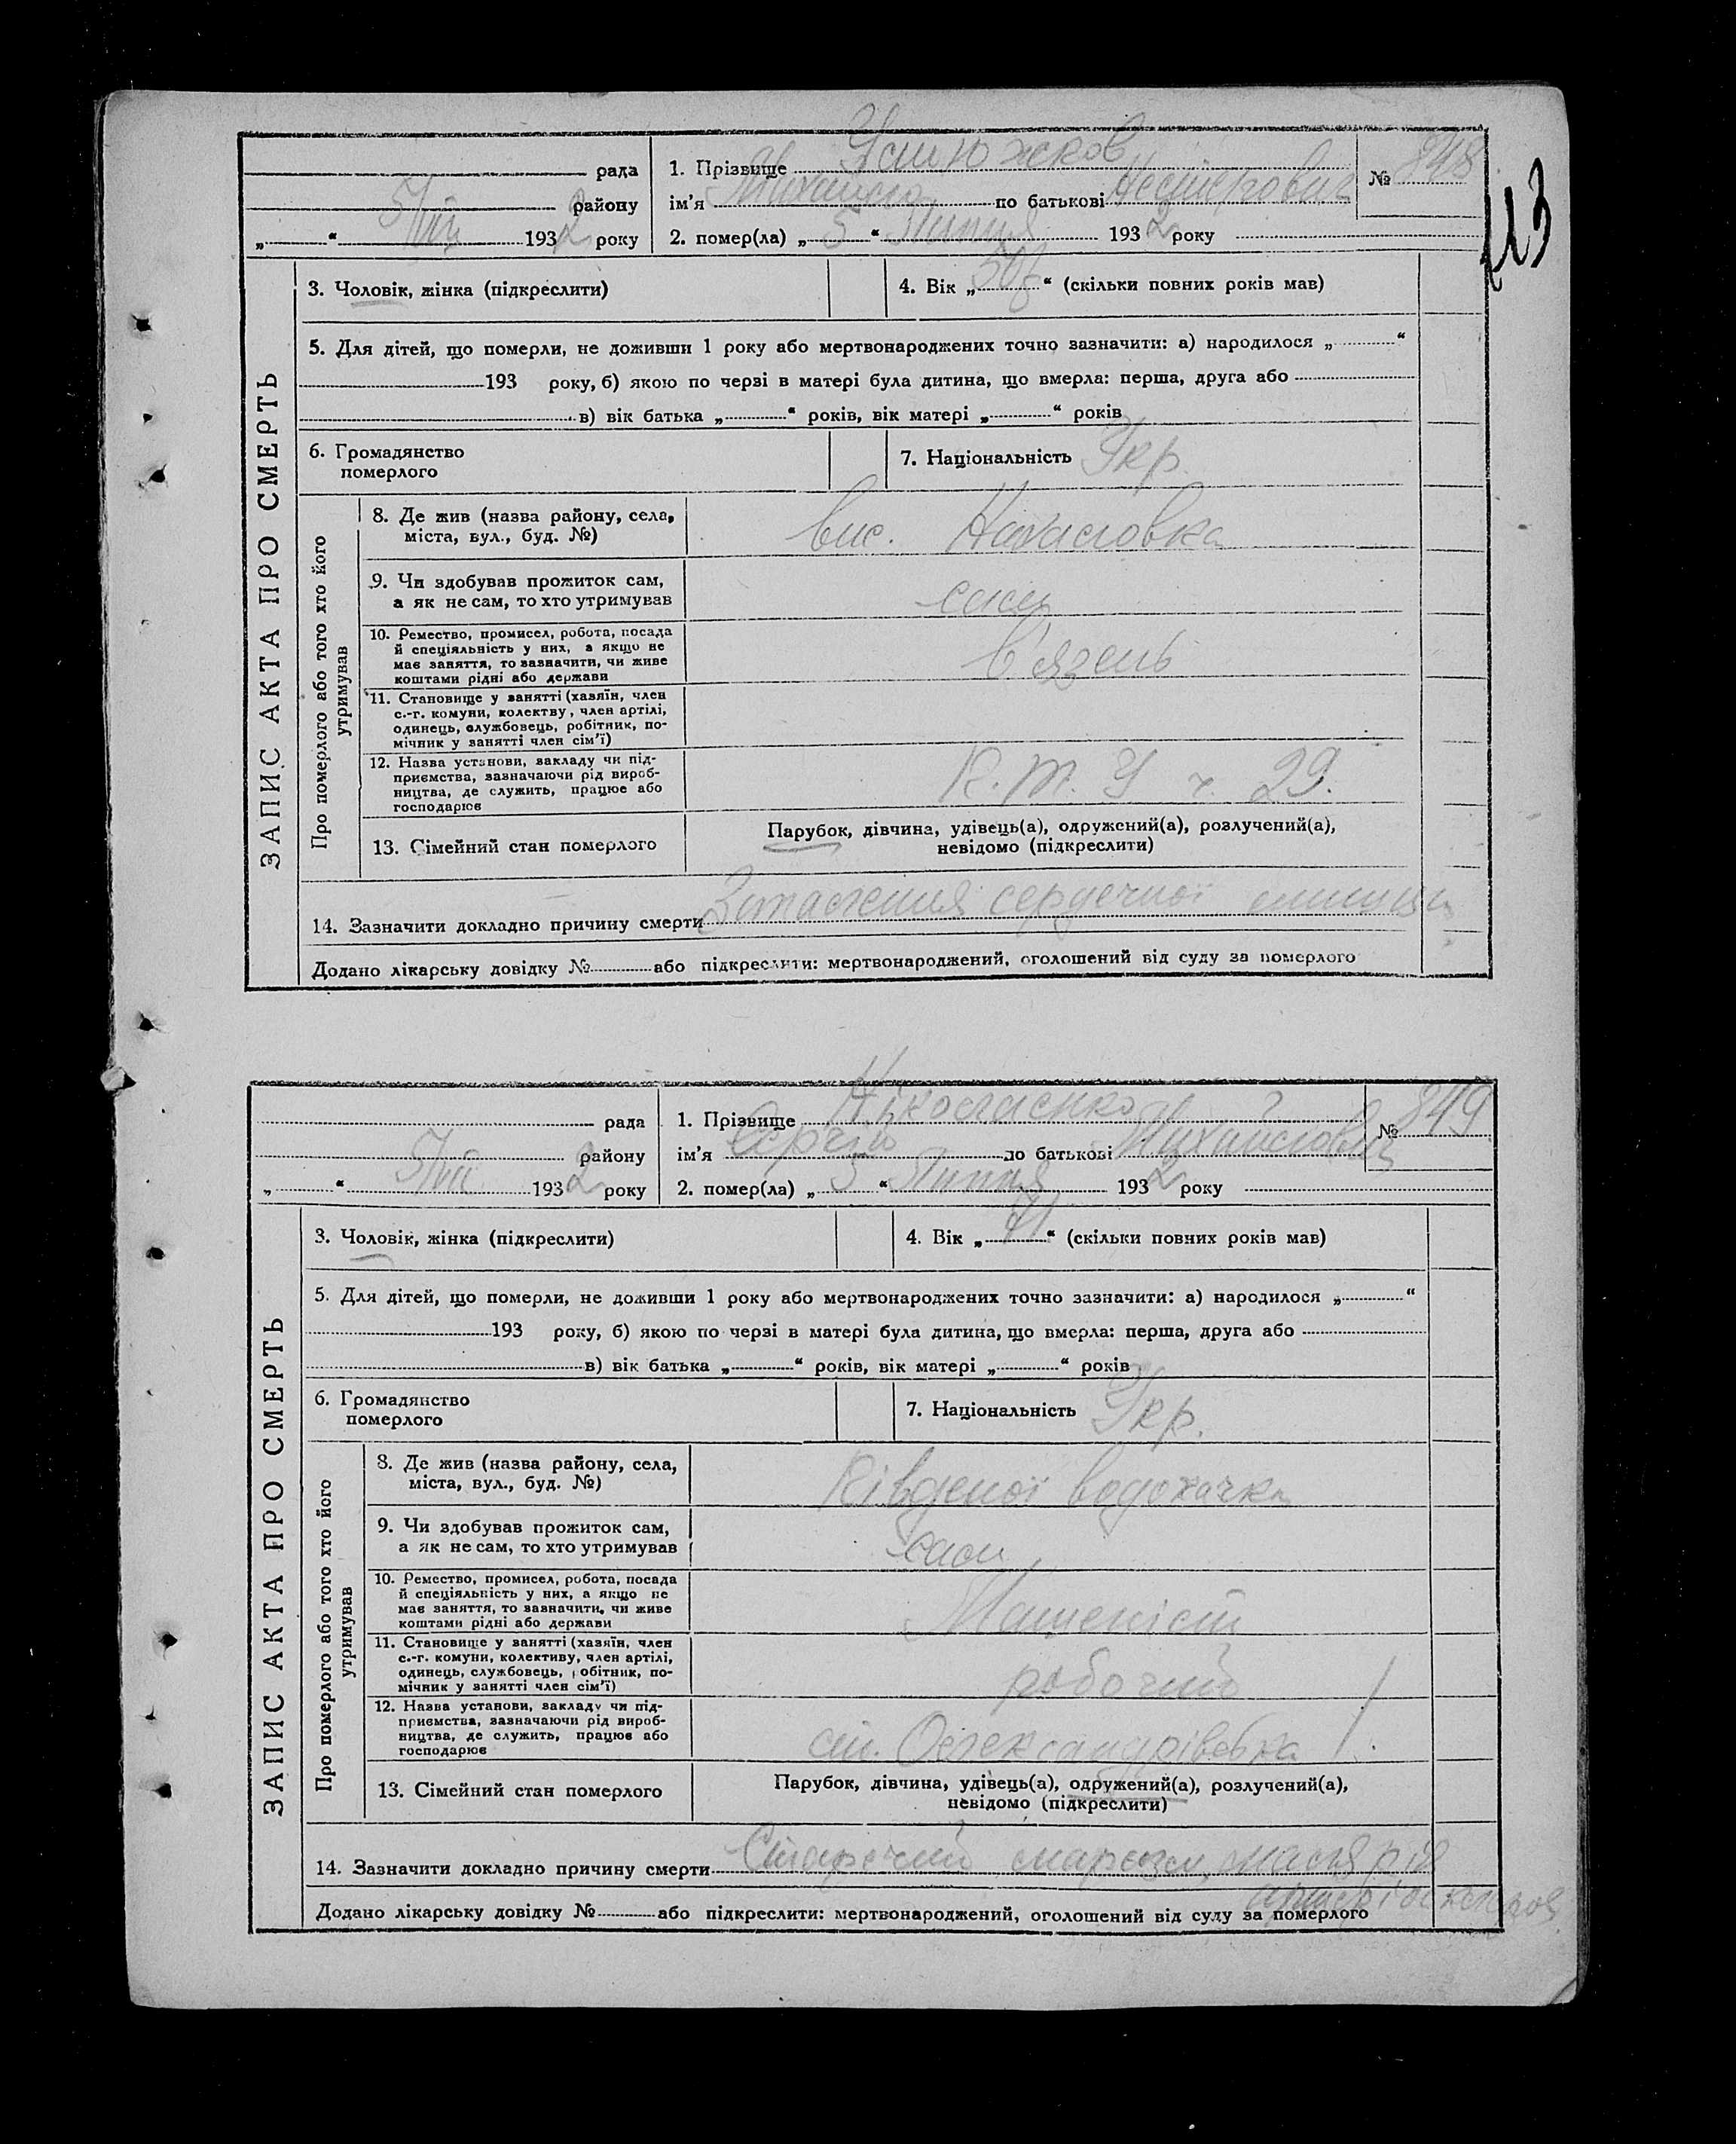 113
рада
району
„ “ 5/VII 1932 року
1. Прізвище Устюжков
ім'я Михайло по батькові Нестерович
2. помер(ла) „ 5 “ Липня 1932 року
№ 848
ЗАПИС АКТА ПРО СМЕРТЬ
3. Чоловік, жінка (підкреслити)
4. Вік „ “ (скільки повних років мав)
5. Для дітей, що померли, не доживши 1 року або мертвонароджених точно зазначити: а) народилося „ “
193 року, б) якою по черзі в матері була дитина, що вмерла: перша, друга або
в) вік батька „ “ років, вік матері „ “ років
6. Громадянство
померлого
7. Національність Укр.
Про померлого або того хто його
утримував
8. Де жив (назва району, села,
міста, вул., буд. №)
вис. Нахаловка
9. Чи здобував прожиток сам,
а як не сам, то хто утримував
сам
10. Ремество, промисел, робота, посада
й спеціяльність у них, а якщо не
має заняття, то зазначити, чи живе
коштами рідні або держави
в'язень
11. Становище у занятті (хазяїн, член
с.-г. комуни, колектву, член артілі,
одинець, службовець, робітник, по-
мічник у занятті член сім'ї)
12. Назва установи, закладу чи під-
приємства, зазначаючи рід вироб-
ництва, де служить, працює або
господарює
К. т. У ч. 29.
13. Сімейний стан померлого
Парубок, дівчина, удівець(а), одружений(а), розлучений(а),
невідомо (підкреслити)
14. Зазначити докладно причину смерти сердечної
Додано лікарську довідку № або підкреслити: мертвонароджений, оголошений від суду за померлого
рада
району
„ “ 5/VII 1932 року
1. Прізвище Ніколаєнко
ім'я Сергій по батькові Михайлович
2. помер(ла) „ 5 “ Липня 1932 року
№ 849
ЗАПИС АКТА ПРО СМЕРТЬ
3. Чоловік, жінка (підкреслити)
4. Вік „ 71 “ (скільки повних років мав)
5. Для дітей, що померли, не доживши 1 року або мертвонароджених точно зазначити: а) народилося „ “
193 року, б) якою по черзі в матері була дитина, що вмерла: перша, друга або
в) вік батька „ “ років, вік матері „ “ років
6. Громадянство
померлого
7. Національність Укр.
Про померлого або того хто його
утримував
8. Де жив (назва району, села,
міста, вул., буд. №)
Південої водокачка
9. Чи здобував прожиток сам,
а як не сам, то хто утримував
сам
10. Ремество, промисел, робота, посада
й спеціяльність у них, а якщо не
має заняття, то зазначити, чи живе
коштами рідні або держави
Машеніст
11. Становище у занятті (хазяїн, член
с.-г. комуни, колективу, член артілі,
одинець, службовець, робітник, по-
мічник у занятті член сім'ї)
робочий
12. Назва установи, закладу чи під-
приємства, зазначаючи рід вироб-
ництва, де служить, працює або
господарює
ст. Олександрівевка
13. Сімейний стан померлого
Парубок, дівчина, удівець(а), одружений(а), розлучений(а),
невідомо (підкреслити)
14. Зазначити докладно причину смерти Старечий маразм, малярія
Додано лікарську довідку № або підкреслити: мертвонароджений, оголошений від суду за померлого